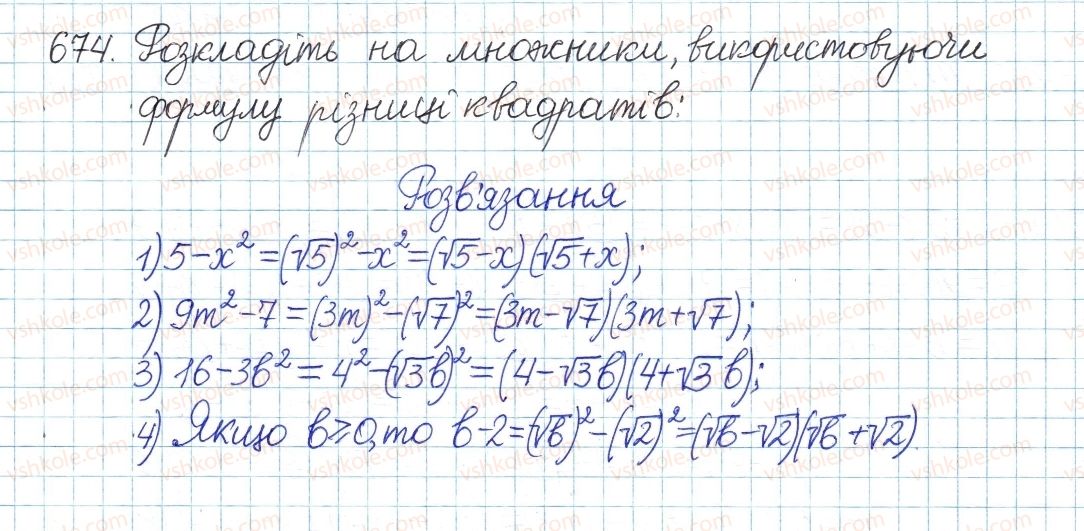 674. Розкладіть на множники, використовуючи
формулу різниці квадратів:
Розв'язання
1) 5-x²=(√5)²-x²=(√5-x)(√5+x);
2) 9m²-7=(3m)²-(√7)²=(3m-√7)(3m+√7);
3) 16-3b²=4²-(√3b)²=(4-√3b)(4+√3b);
4) Якщо b≥0, то b-2=(√b)²-(√2)²=(√b-√2)(√b+√2).